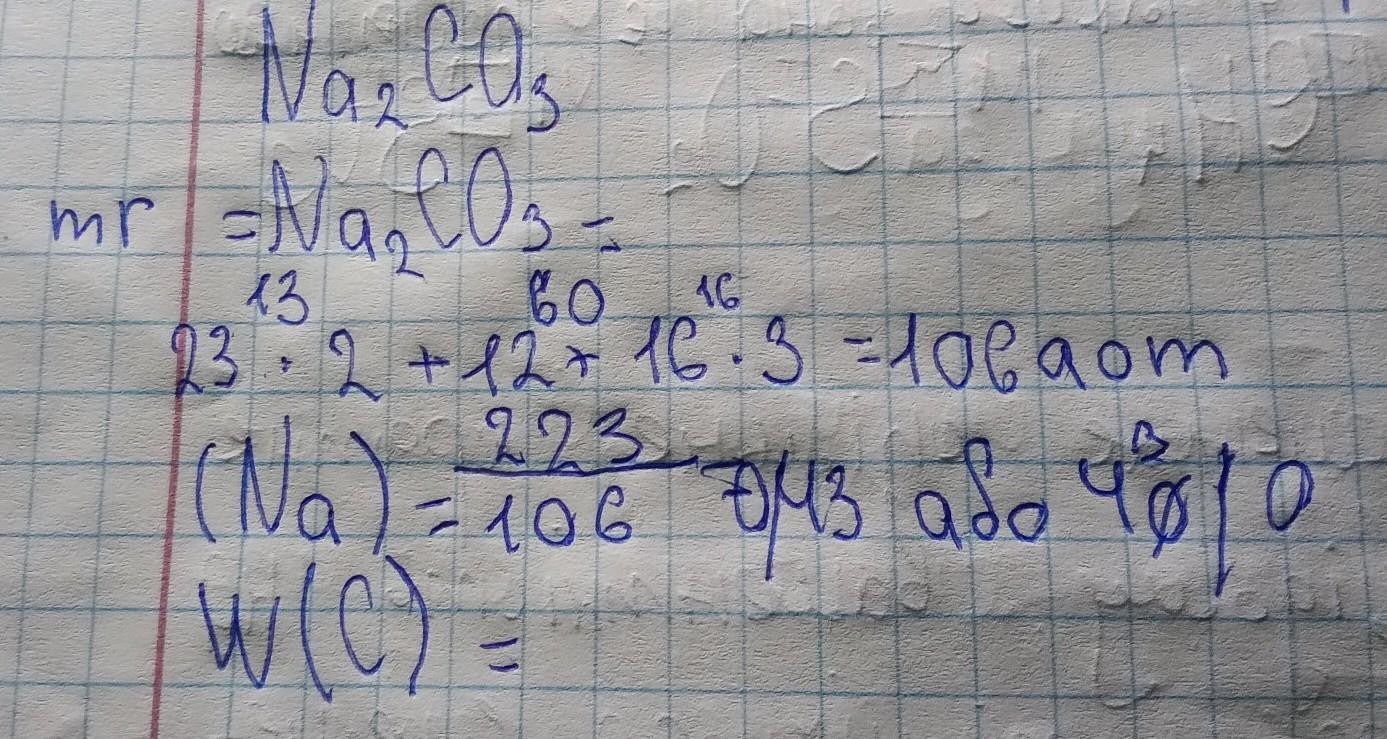 Na₂CO₃
mr = Na₂CO₃ =
13 60 16
23 · 2 + 12 + 16 · 3 = 106 а о m
(Na) = 223/106 = 0,43 або 43 %
W(C) =